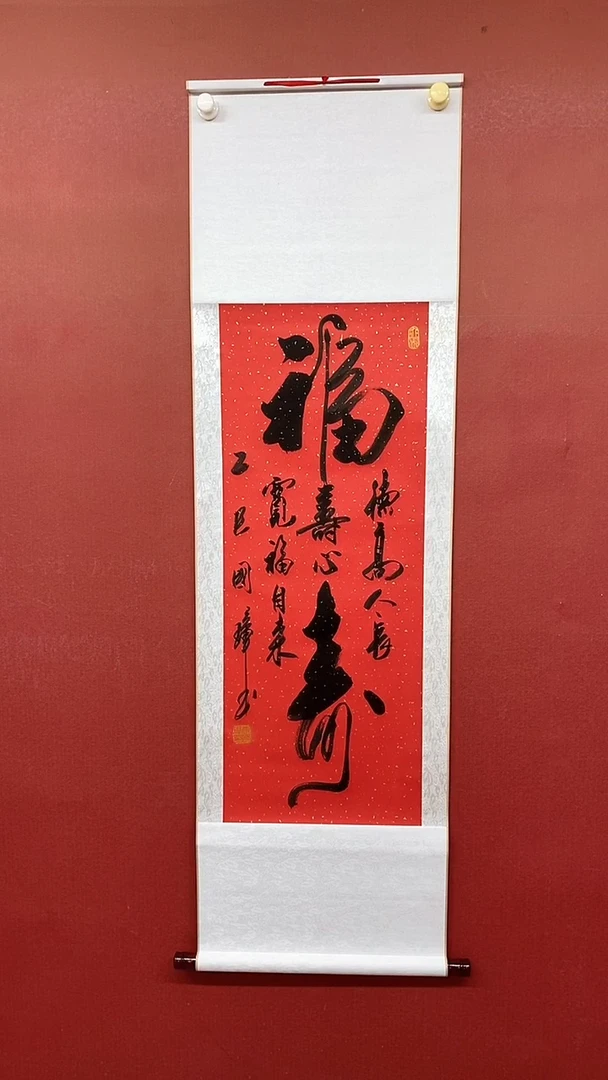 福壽
德高人長
壽心
寬福自来
乙巳國璋书